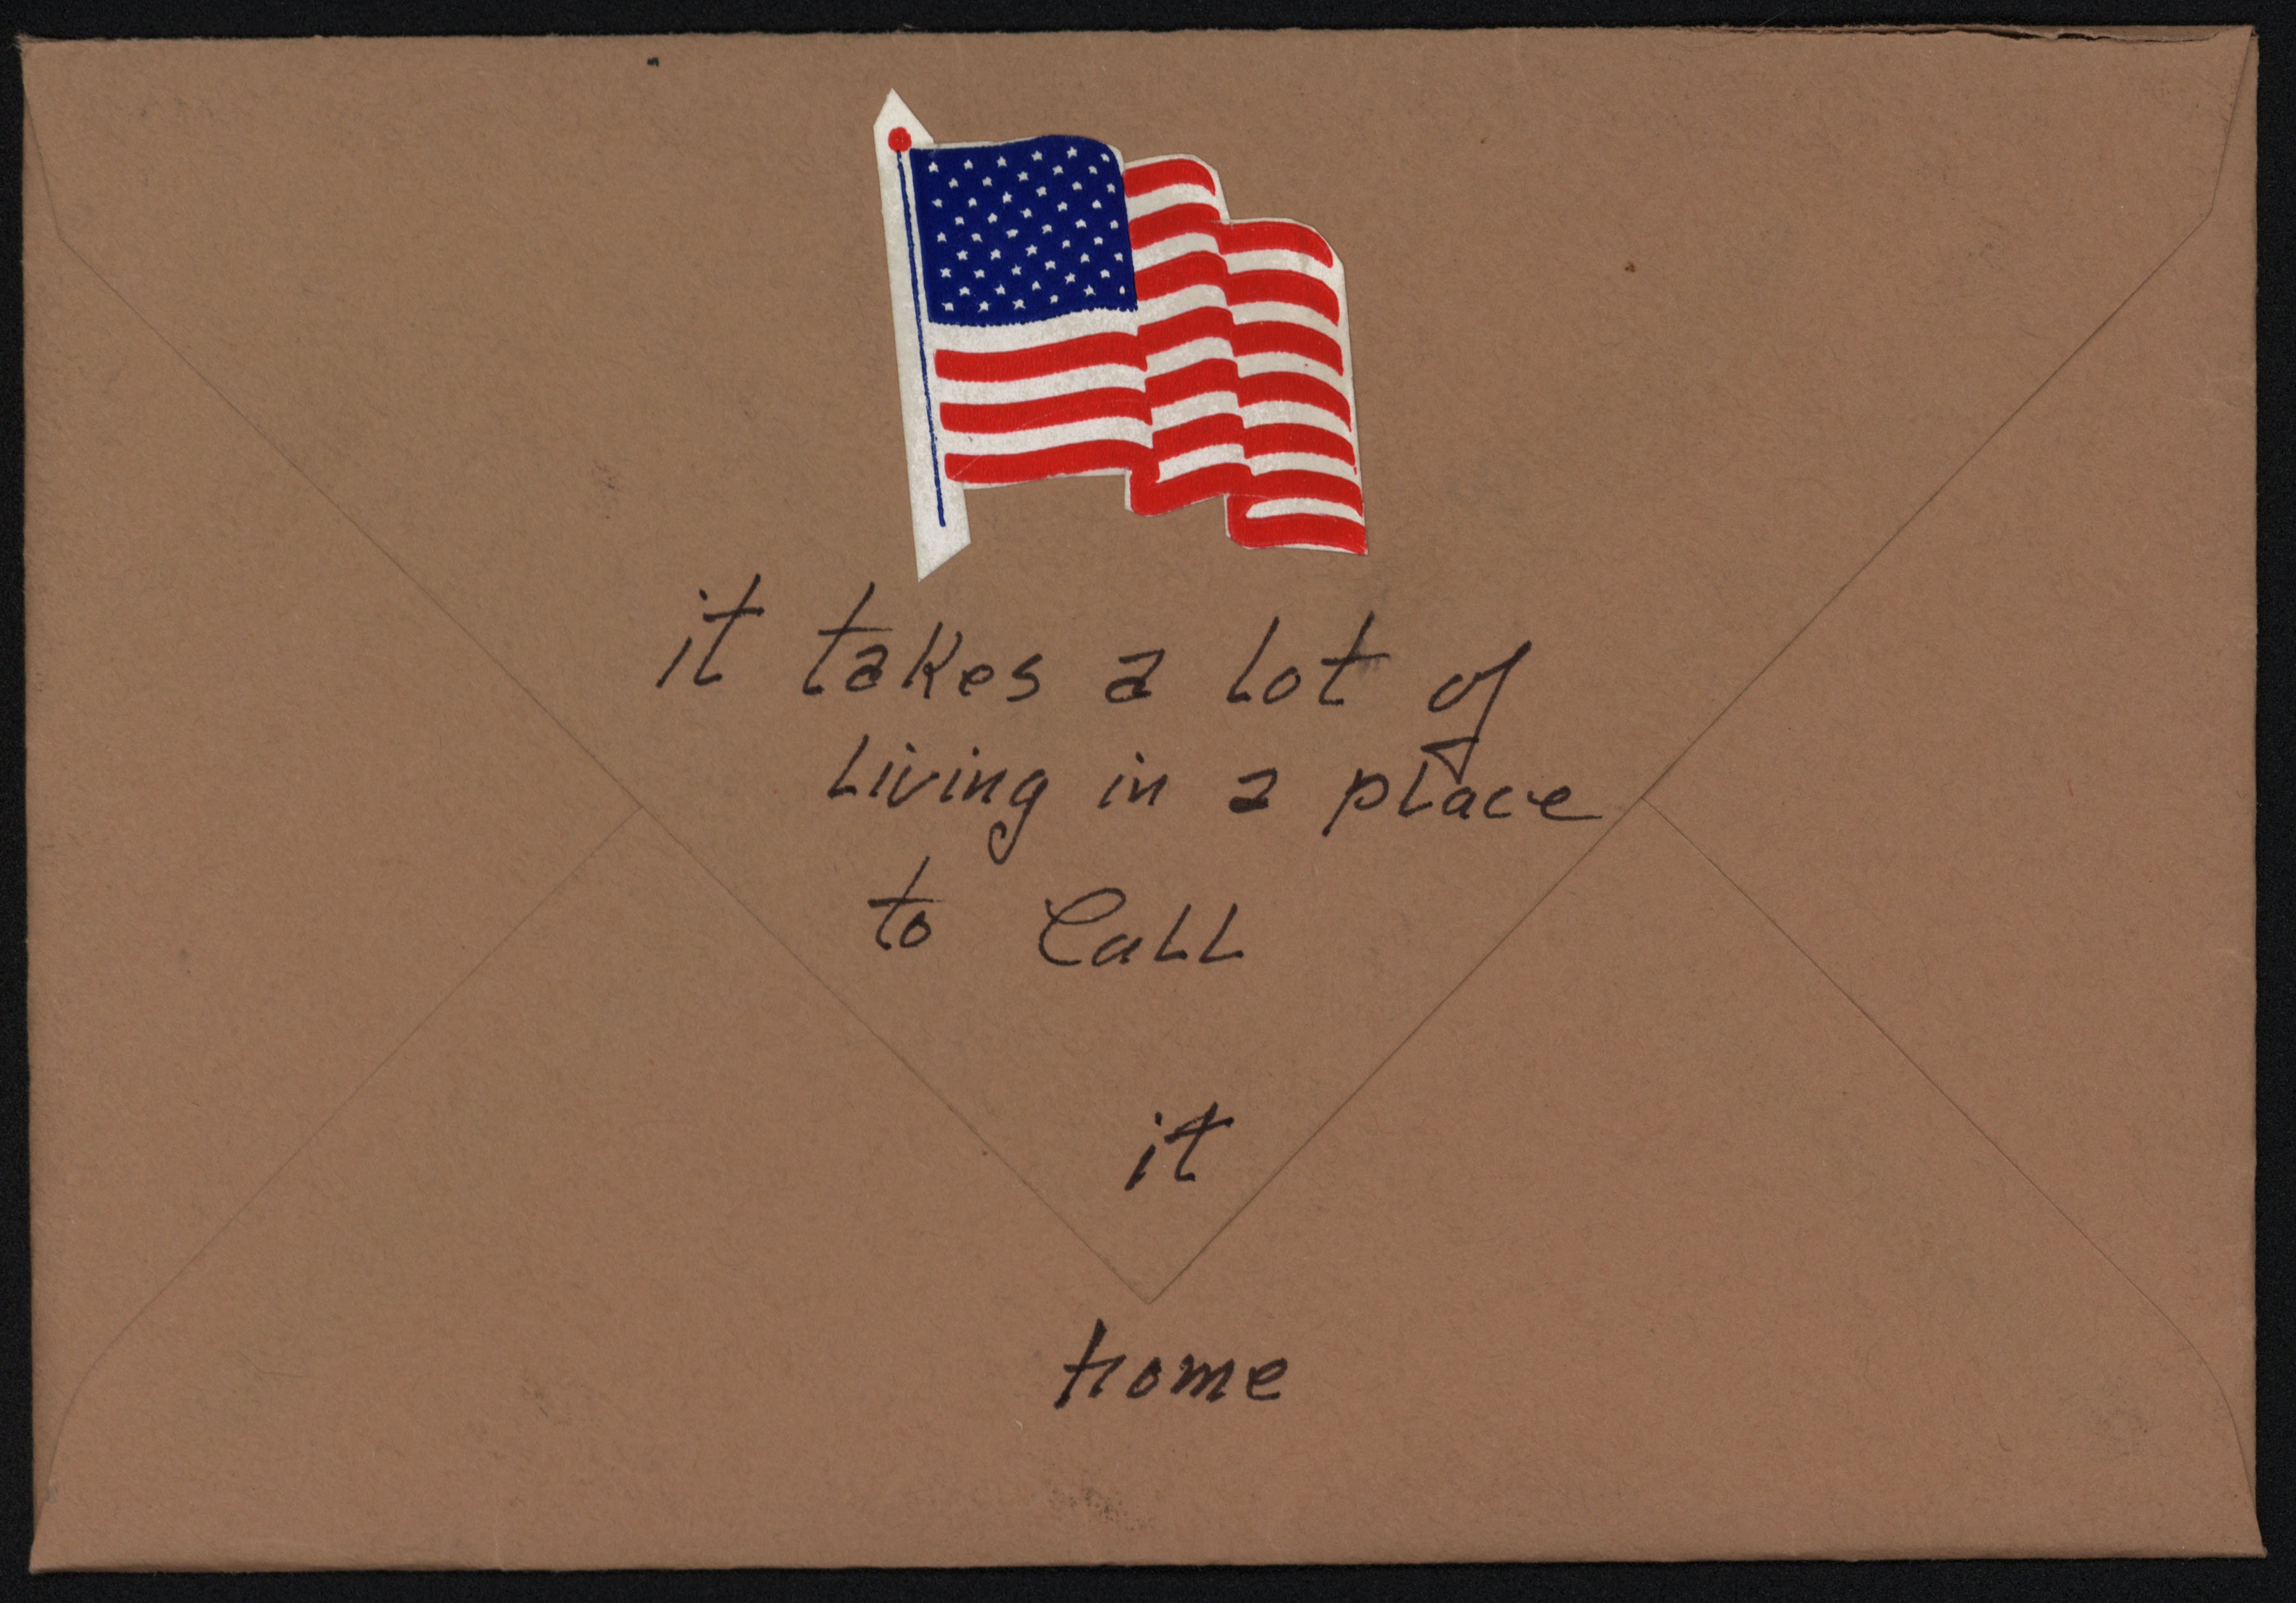 it takes a lot of
Living in a place
to Call
it
home